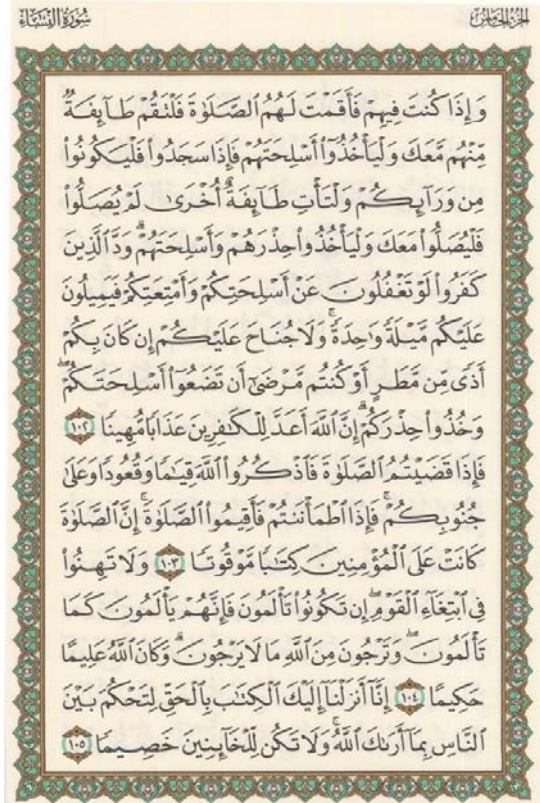 الجزء الخامس
سُورَةُ النِّسَاءِ
وَإِذَا كُنتَ فِيهِمْ فَأَقَمْتَ لَهُمُ ٱلصَّلَوٰةَ فَلْتَقُمْ طَآئِفَةٌ
مِّنْهُم مَّعَكَ وَلْيَأْخُذُوٓا۟ أَسْلِحَتَهُمْ فَإِذَا سَجَدُوا۟ فَلْيَكُونُوا۟
مِن وَرَآئِكُمْ وَلْتَأْتِ طَآئِفَةٌ أُخْرَىٰ لَمْ يُصَلُّوا۟
فَلْيُصَلُّوا۟ مَعَكَ وَلْيَأْخُذُوا۟ حِذْرَهُمْ وَأَسْلِحَتَهُمْ ۗ وَدَّ ٱلَّذِينَ
كَفَرُوا۟ لَوْ تَغْفُلُونَ عَنْ أَسْلِحَتِكُمْ وَأَمْتِعَتِكُمْ فَيَمِيلُونَ
عَلَيْكُم مَّيْلَةً وَٰحِدَةً ۚ وَلَا جُنَاحَ عَلَيْكُمْ إِن كَانَ بِكُمْ
أَذًى مِّن مَّطَرٍ أَوْ كُنتُم مَّرْضَىٰٓ أَن تَضَعُوٓا۟ أَسْلِحَتَكُمْ ۖ
وَخُذُوا۟ حِذْرَكُمْ ۗ إِنَّ ٱللَّهَ أَعَدَّ لِلْكَٰفِرِينَ عَذَابًا مُّهِينًا ١٠٢
فَإِذَا قَضَيْتُمُ ٱلصَّلَوٰةَ فَٱذْكُرُوا۟ ٱللَّهَ قِيَٰمًا وَقُعُودًا وَعَلَىٰ
جُنُوبِكُمْ ۚ فَإِذَا ٱطْمَأْنَنتُمْ فَأَقِيمُوا۟ ٱلصَّلَوٰةَ ۚ إِنَّ ٱلصَّلَوٰةَ
كَانَتْ عَلَى ٱلْمُؤْمِنِينَ كِتَٰبًا مَّوْقُوتًا ١٠٣ وَلَا تَهِنُوا۟
فِى ٱبْتِغَآءِ ٱلْقَوْمِ ۖ إِن تَكُونُوا۟ تَأْلَمُونَ فَإِنَّهُمْ يَأْلَمُونَ كَمَا
تَأْلَمُونَ ۖ وَتَرْجُونَ مِنَ ٱللَّهِ مَا لَا يَرْجُونَ ۗ وَكَانَ ٱللَّهُ عَلِيمًا
حَكِيمًا ١٠٤ إِنَّآ أَنزَلْنَآ إِلَيْكَ ٱلْكِتَٰبَ بِٱلْحَقِّ لِتَحْكُمَ بَيْنَ
ٱلنَّاسِ بِمَآ أَرَىٰكَ ٱللَّهُ ۚ وَلَا تَكُن لِّلْخَآئِنِينَ خَصِيمًا ١٠٥